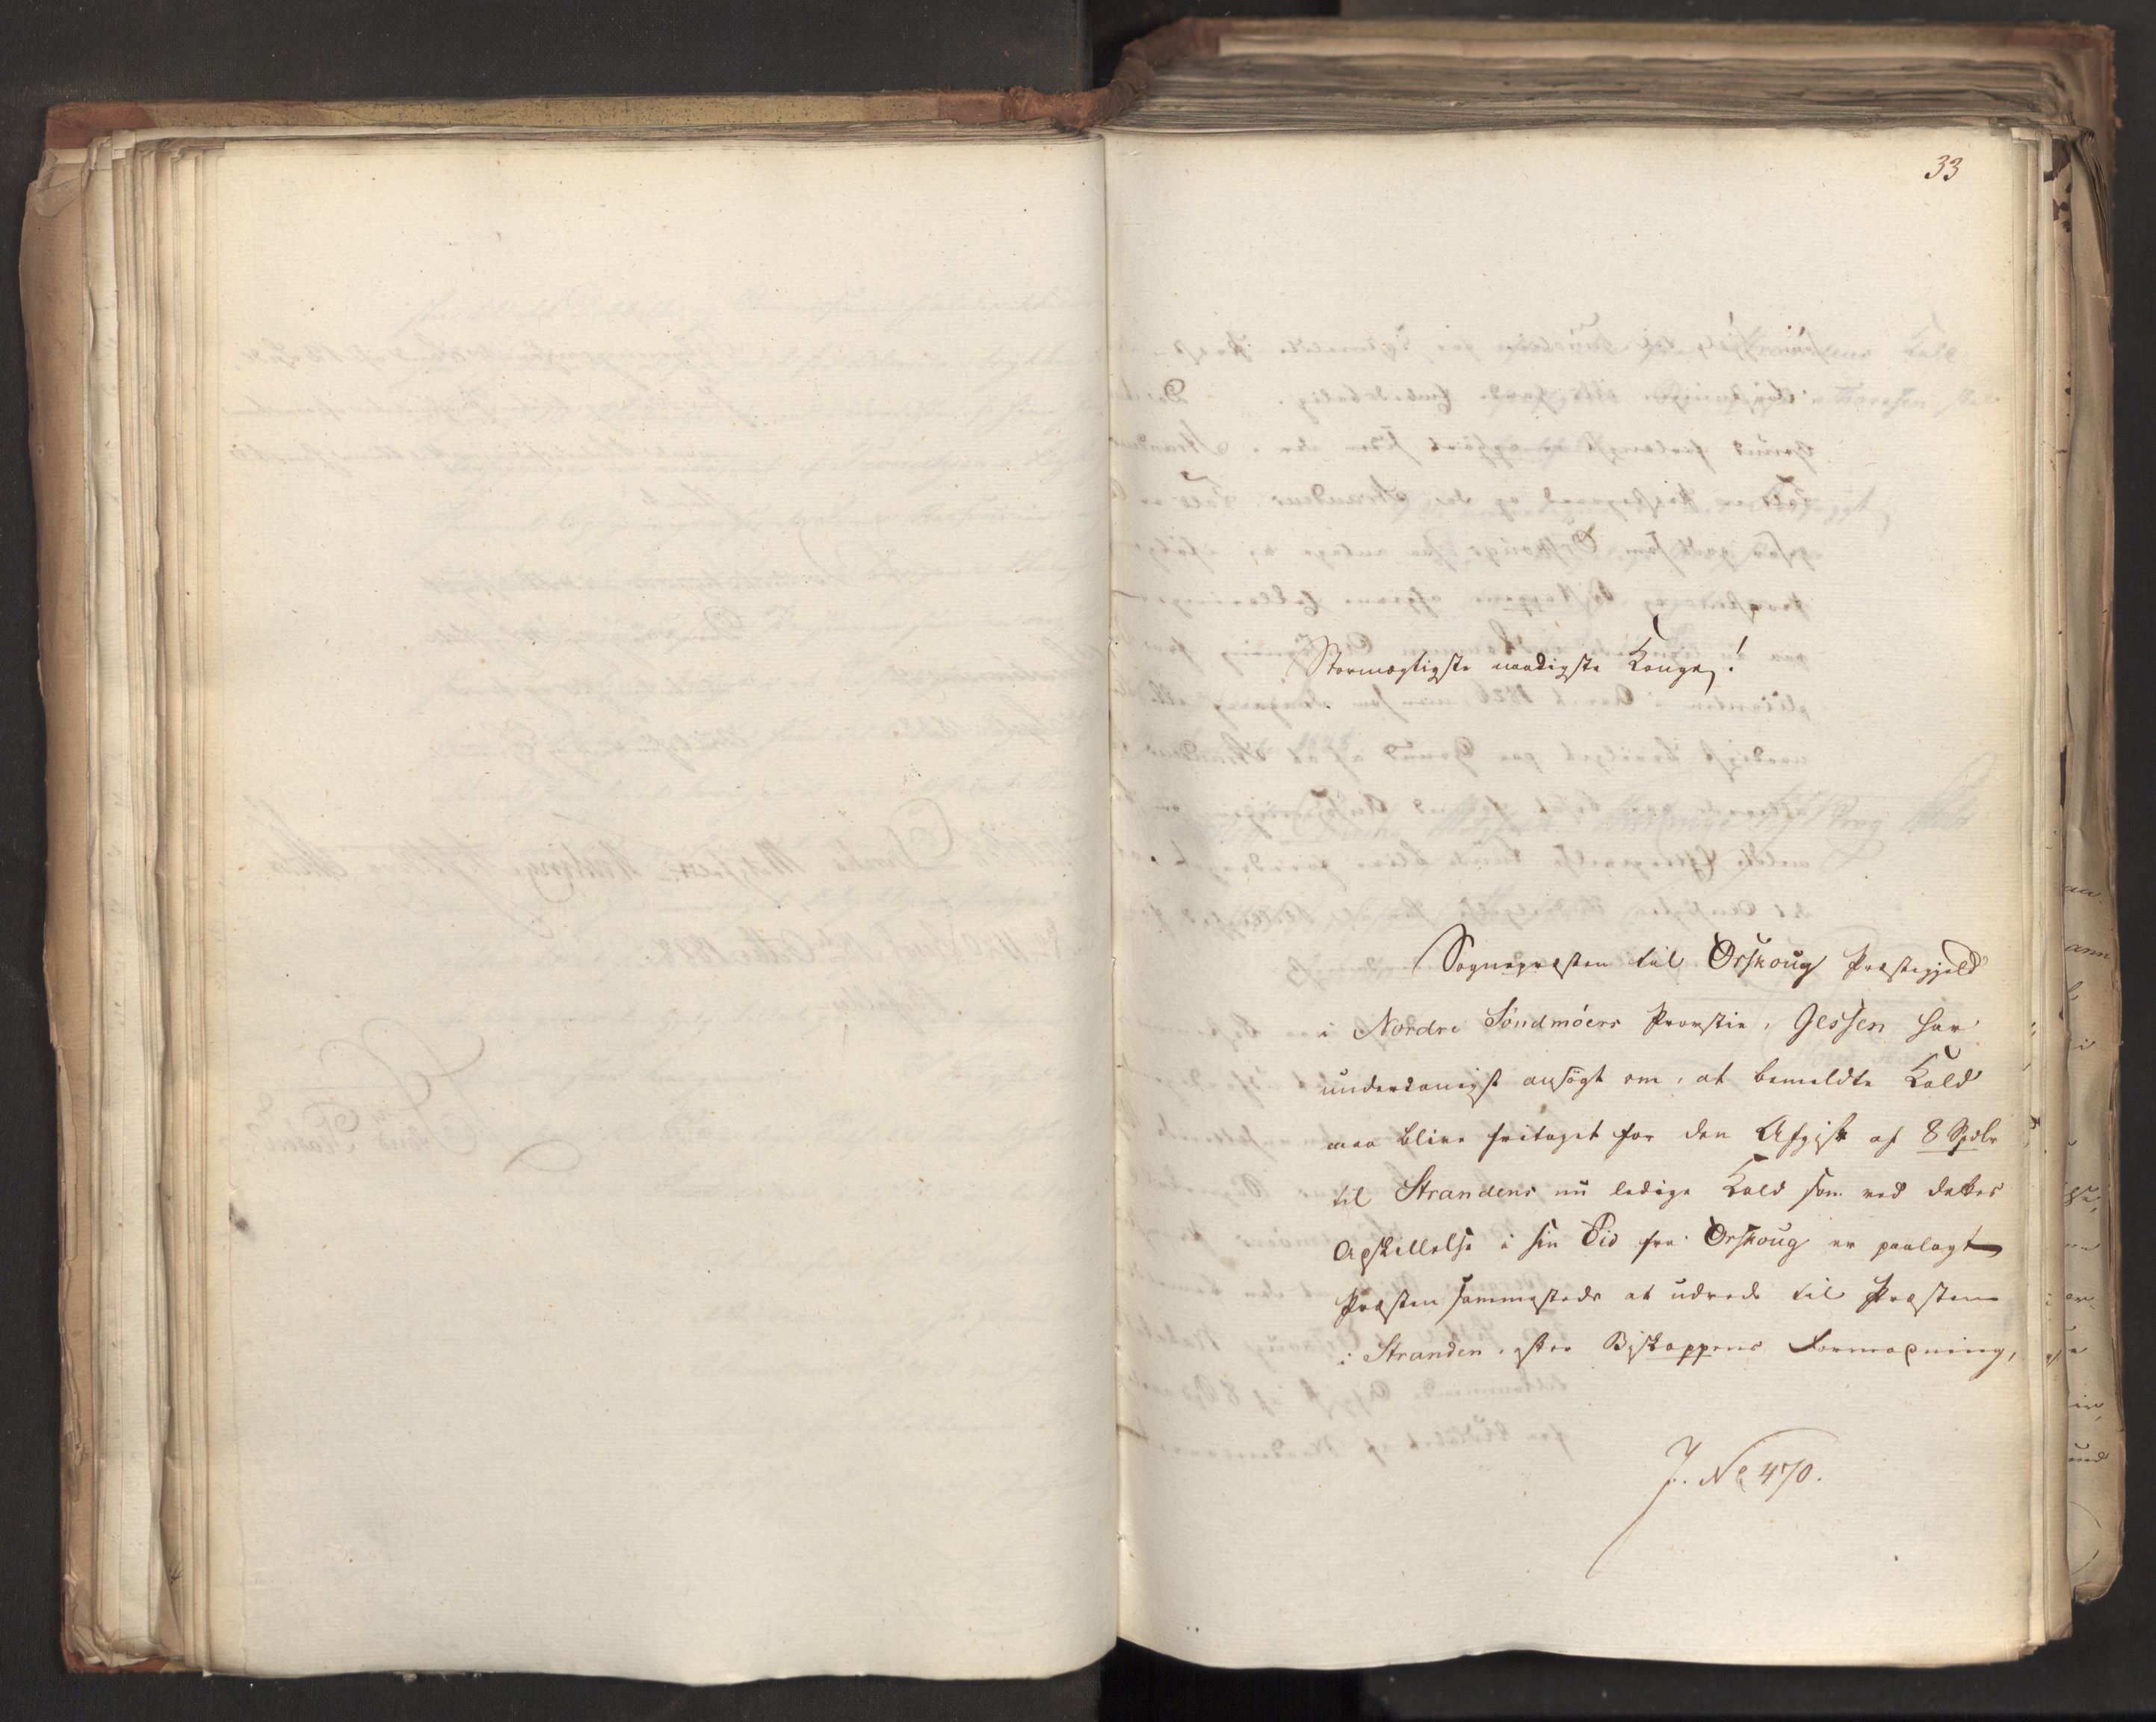 33
Stormægtigste naadigste Konge!
Sognepræsten til Orskoug Præstegjeld
i Nordre Söndmöers Provstie, Jessen har
underdanigst ansögt om, at bemeldte Kald
maa blive fritaget for den Afgift af 8 Spdlr
til Strandens nu ledige Kald som ved dettes
Adskillelse i sin Tid fra Orskoug er paalagt
Præsten sammesteds at udrede til Præsten
i Stranden. efter Biskoppens Formening,
J. No 470.